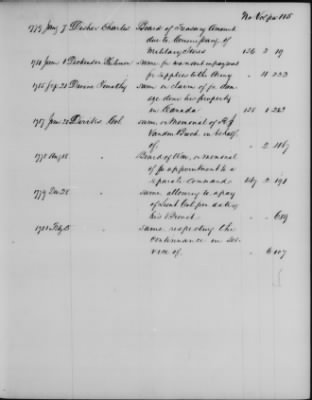 No Vol pa 185
1779 Jany 7 Decher Charles Board of Treasury Amount
due to Commissary of
Military Stores 136 2 19
1781 June 1 Dickenson Palmer same for warrant in payment
for supplies to the Army " 11 233
1785 Sep 21 Devens Timothy same on claim of for dam-
age done his property
in Canada 138 1 243
1787 Jan 20 Dirricks Col. same, on Memorial of H J
Vanden Bosch in behalf
of. " 2 1167
1778 Aug 18 " Board of War, on memorial
of for appointment to a
separate command 147 2 191
1779 Dec 28 " same allowing to a pay
of Lieut Col from date of
his Brevet. " " 609
1781 Feby 5 " same respecting the
continuance in ser-
vice of. " 6 107